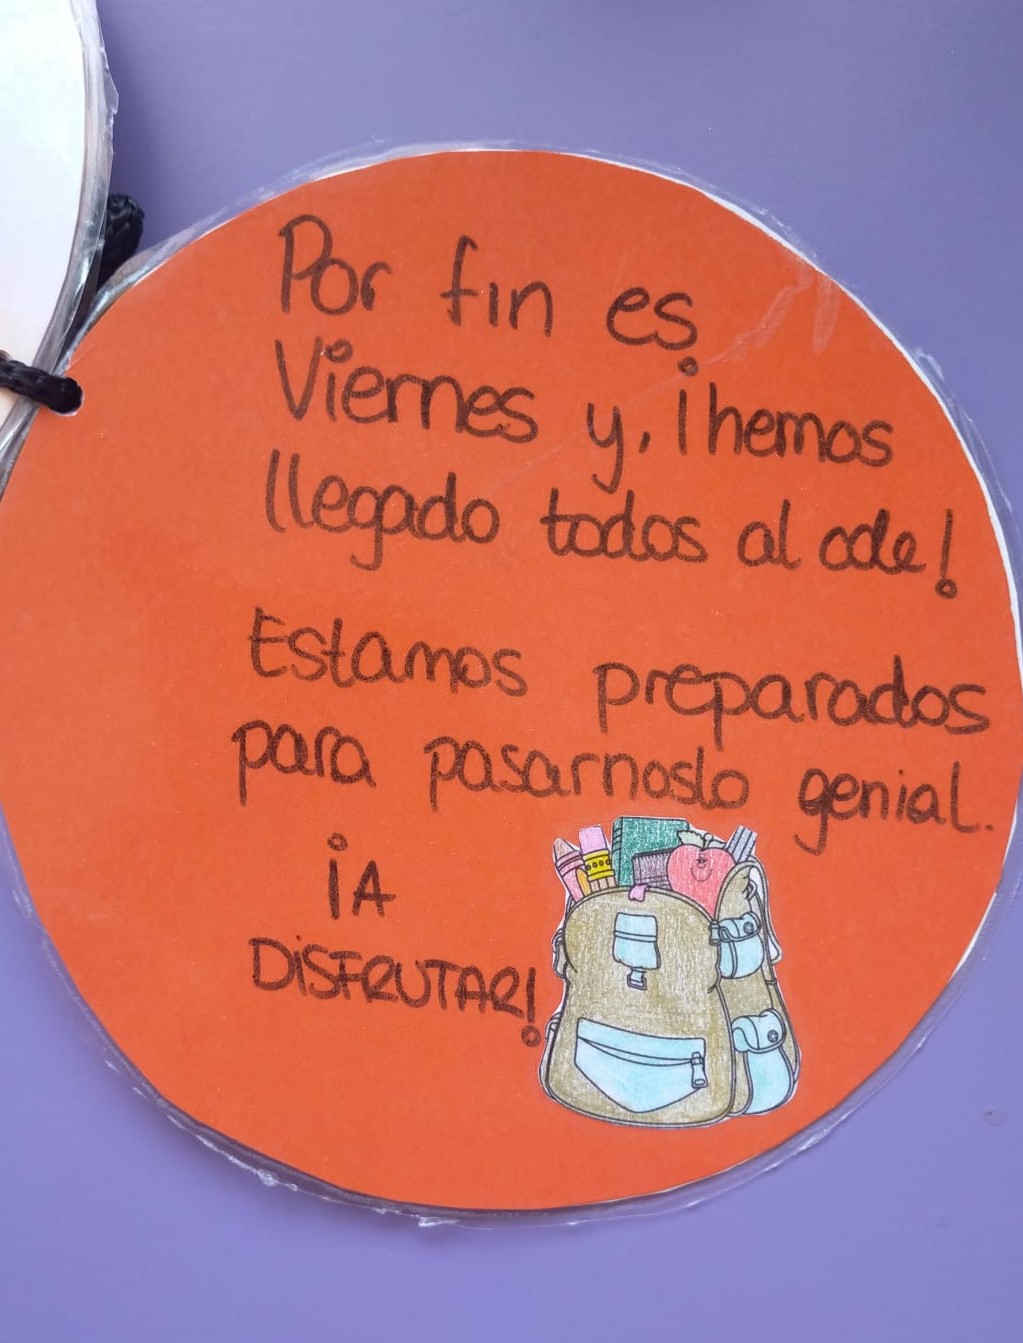 Por fin es
Viernes y, ¡hemos
llegado todos al cole!
Estamos preparados
para pasarnoslo genial.
¡A
DiSFRUTAR!